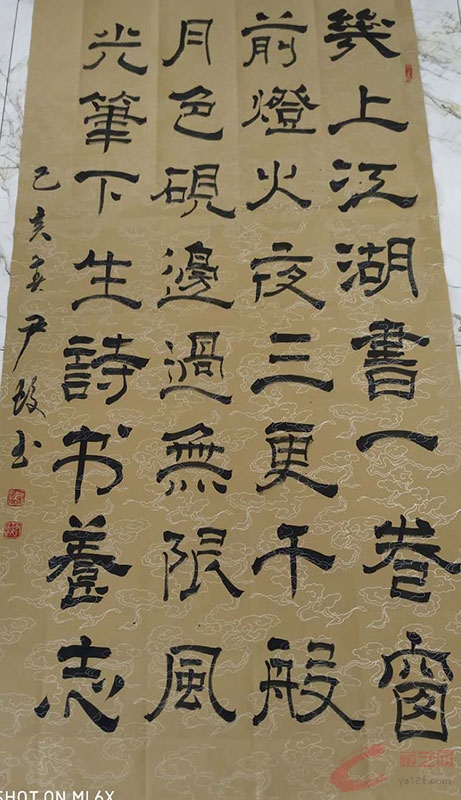 幾上江湖書一卷窗
前燈火夜三更千般
月色硯邊過無限風
光筆下生詩书養志
己亥 尹 书
SHOT ON MI 6X